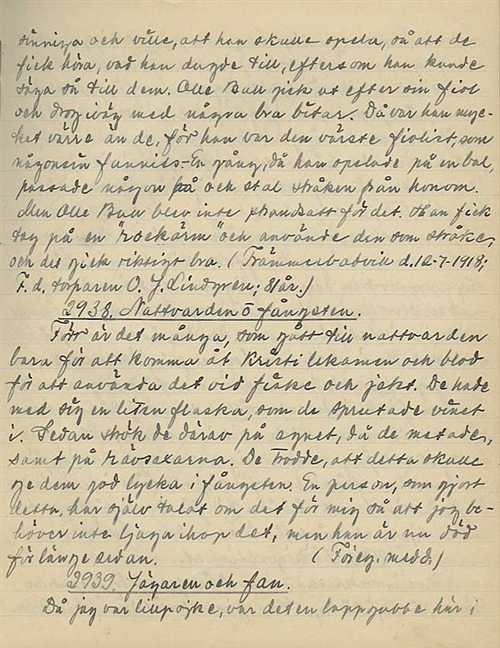 sinniga och ville, att han skulle spela, så att de
fick höra, vad han dugde till, eftersom han kunde
säga så till dem. Olle Bull gick ut efter sin fiol
och drog iväg med några bra bitar. Då var han myc-
ket värre än de, för han var den värste fiolist, som
någonsin funnits. En gång, då han spelade på en bal,
passade någon på och stal stråken från honom.
Men Olle Bull blev inte strandsatt för det. Han fick
tag på en "rockärm" och använde den som stråke,
och det gick riktigt bra. ( d. 12-7-1918;
F. d. torparen O. J. Lindgren; 81 år.)
2938. Nattvarden o fångsten.
Förr är det många, som gått till nattvarden
bara för att komma åt Kristi lekamen och blod
för att använda det vid fiske och jakt. De hade
med sig en liten flaska, som de sprutade vinet
i. Sedan strök de därav på agnet, då de metade,
samt på rävsaxarna. De trodde, att detta skulle
ge dem god lycka i fångsten. En person, som gjort
detta, har själv talat om det för mig så att jag be-
höver inte ljuga ihop det, men han är nu död
för länge sedan. (Föreg. medd.)
2939. Jägaren och fan.
Då jag var lillpojke, var det en lappgubbe här i